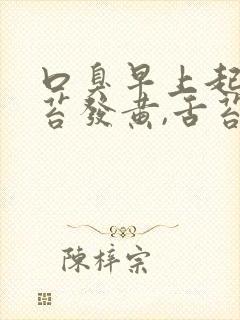 口臭早上起
苔發黄,舌苔
陳梓宗